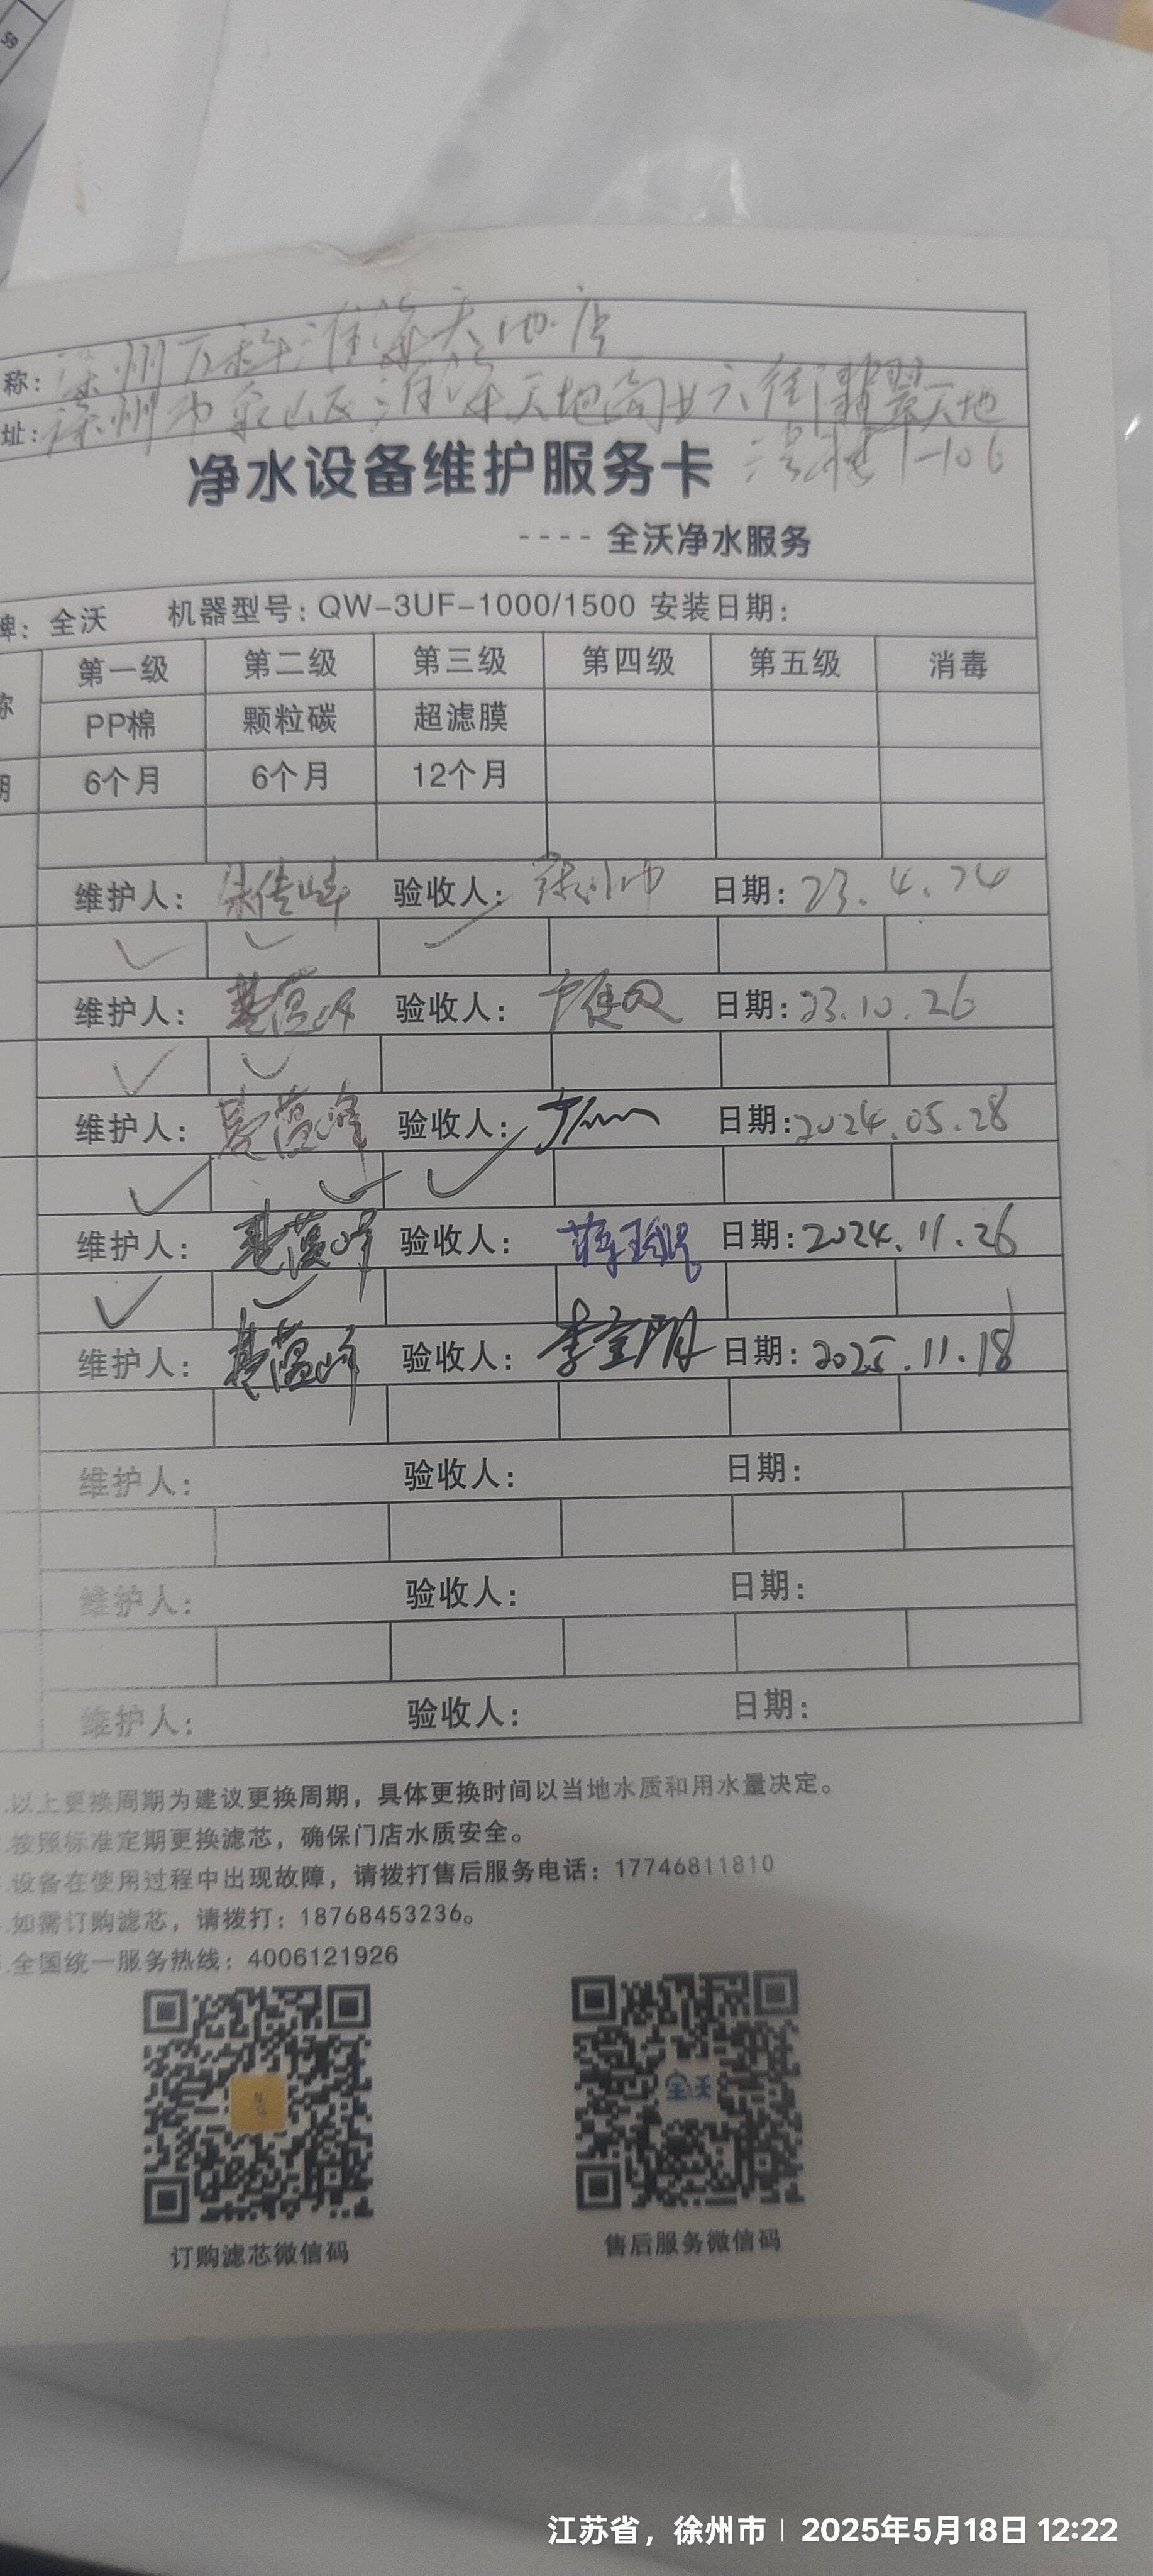 59
称: 徐州万科淮海天地店
址: 徐州市泉山区淮海天地商业六街翡翠天地
1-106
净水设备维护服务卡
---- 全沃净水服务
牌: 全沃 机器型号: QW-3UF-1000/1500 安装日期:
第一级 第二级 第三级 第四级 第五级 消毒
称 PP棉 颗粒碳 超滤膜
期 6个月 6个月 12个月
维护人: 验收人: 日期: 23.4.24
✓ ✓ ✓
维护人: 验收人: 日期: 23.10.26
✓ ✓
维护人: 验收人: 日期: 2024.05.28
✓ ✓ ✓
维护人: 验收人: 日期: 2024.11.26
✓ ✓
维护人: 验收人: 日期: 2025.11.18
维护人: 验收人: 日期:
维护人: 验收人: 日期:
维护人: 验收人: 日期:
.以上更换周期为建议更换周期，具体更换时间以当地水质和用水量决定。
.按照标准定期更换滤芯，确保门店水质安全。
.设备在使用过程中出现故障，请拨打售后服务电话：17746811810
.如需订购滤芯，请拨打：18768453236。
.全国统一服务热线：4006121926
全沃
订购滤芯微信码 售后服务微信码
江苏省，徐州市 | 2025年5月18日 12:22